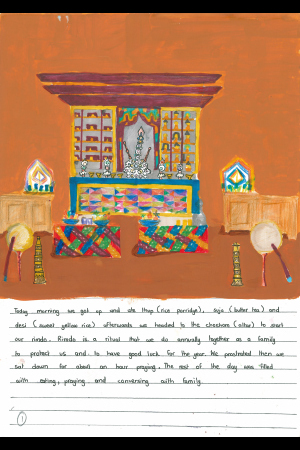 Today morning we got up and ate thup (rice porridge), suja (butter tea) and
desi (sweet yellow rice) afterwards we headed to the chosham (altar) to start
our rimdo. Rimdo is a ritual that we do annually together as a family
to protect us and to have good luck for the year. We prostrated then we
sat down for about an hour praying. The rest of the day was filled
with eating, praying and conversing with family.
1